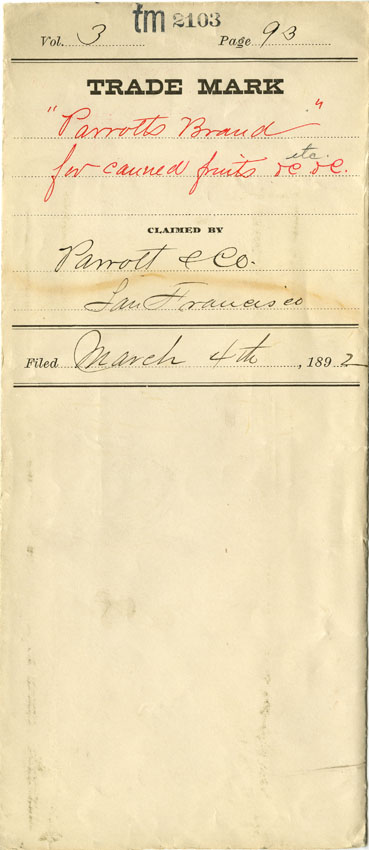 tm 2103
Vol. 3 Page 93
TRADE MARK
"Parrotts Brand"
etc.
for canned fruits &c &c.
CLAIMED BY
Parrott & Co.
San Francisco
Filed March 4th, 1892